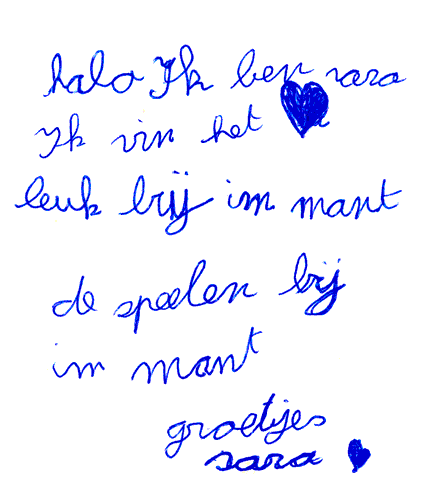 halo Ik ben sara
Ik vin het
leuk bij im mant
de speelen bij
im mant
groetjes
sara